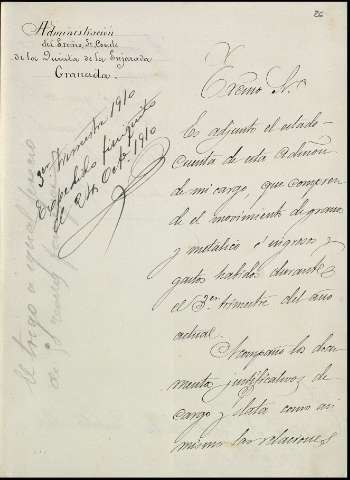 86
Administración
del Excmo. Sr. Conde
de la Quinta de la Enjarada
Granada.
3er trimestre 1910
Expedido finiquito
el 24 Octe. 1910
Excmo Sr.
Es adjunto el estado-
cuenta de esta Admon
de mi cargo, que compren
de el movimiento de granos
y metalico é ingresos y
gastos habidos durante
el 3er. trimestre del año
actual.
Acompaño los docu
mentos justificativos de
cargo y data como asi
mismo las relaciones